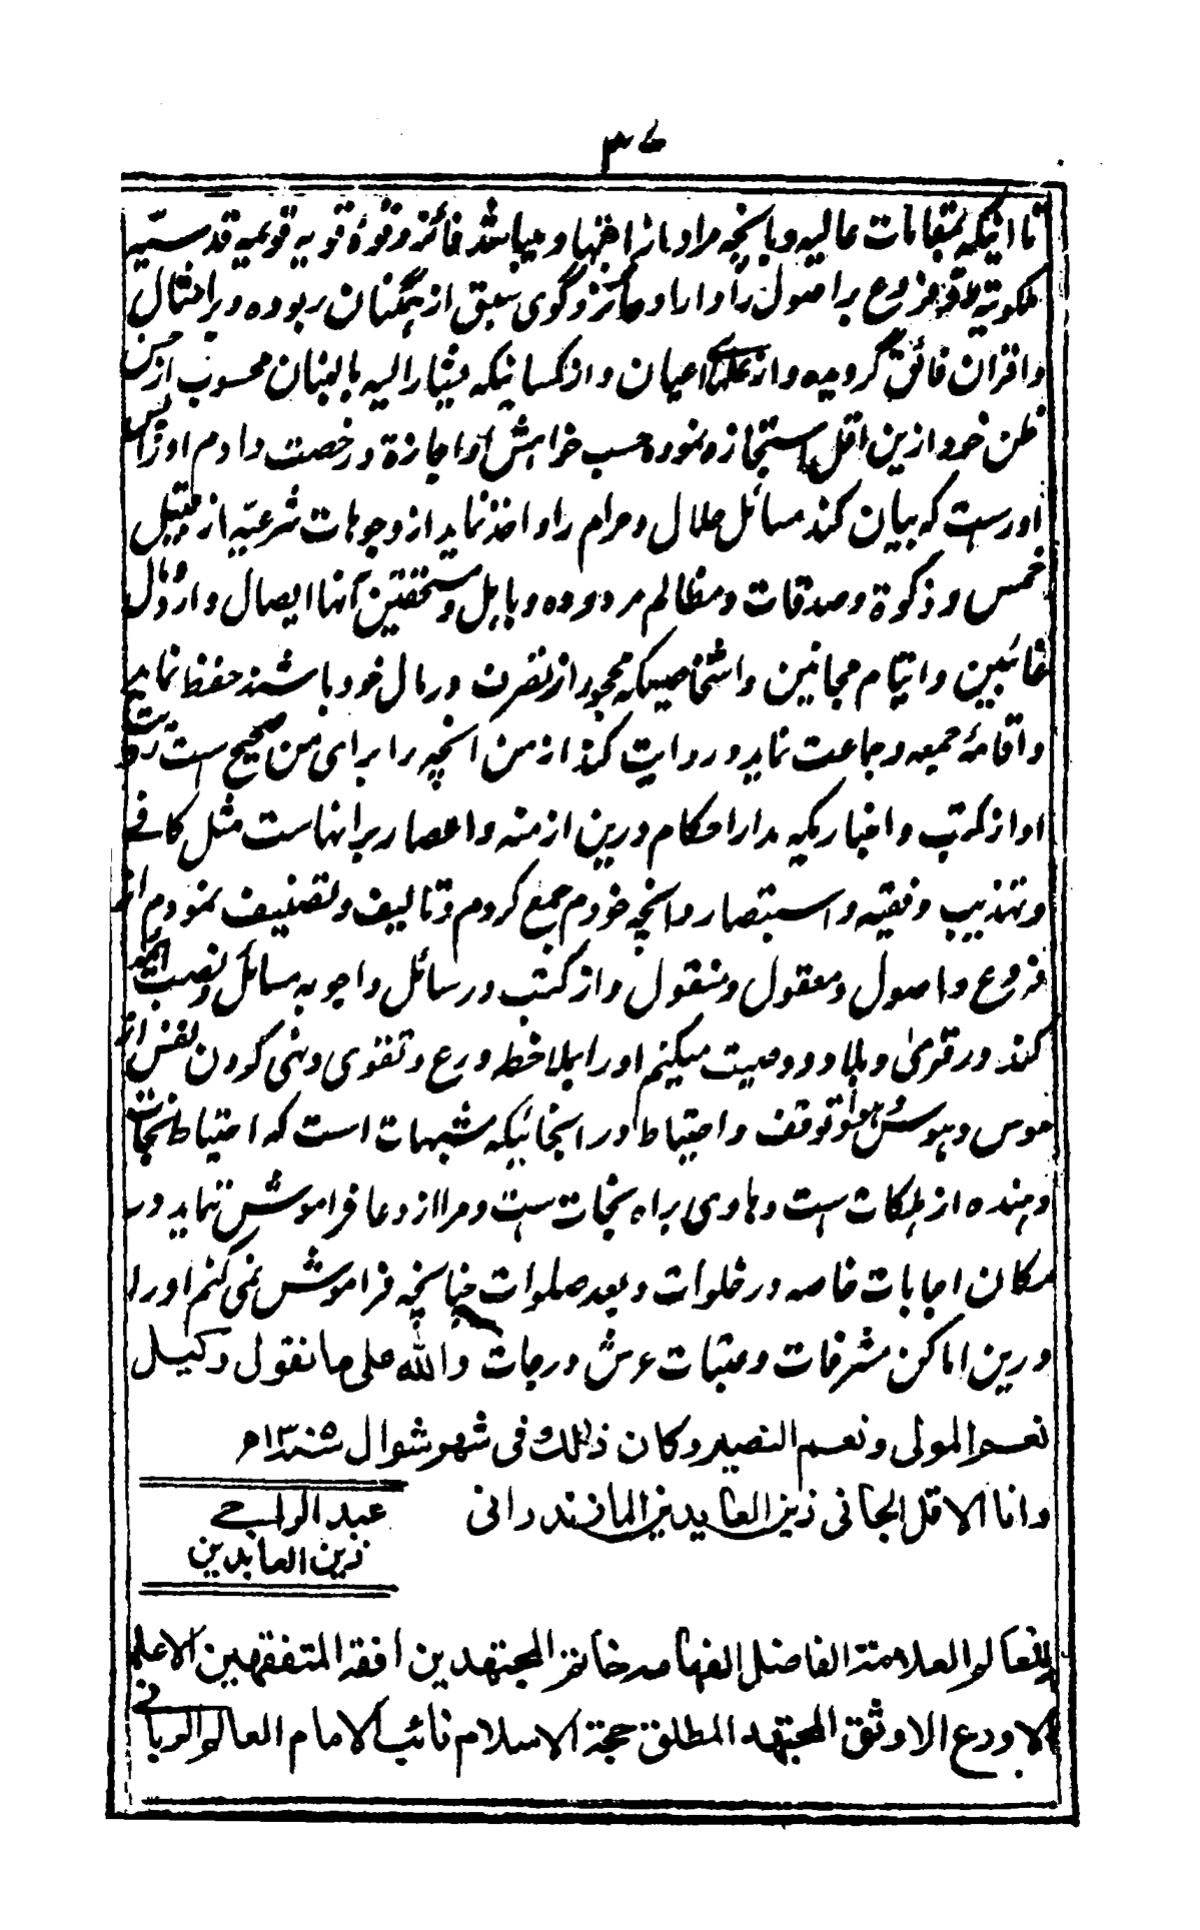 ۳۷
تا اینکه بمقامات عالیه و بآنچه مراد ما از اجتهاد میباشد فائز و قوۀ قویه قویمه قدسیه
ملکوتیه رد فروع بر اصول را دارا و حائز و گوی سبق از همگنان ربوده و بر امثال
و اقران فائق گردیده و از علمای اعیان و از کسانیکه مشار الیه بالبنان محسوب از حسن
ظن خود ازین اقل استجازه نموده حسب خواهش او اجازة و رخصت دادم او را پس
اوراست که بیان کند مسائل حلال و حرام را و اخذ نماید از وجوهات شرعیه از قبیل
خمس و زکوة و صدقات و مظالم مردوده و باهل و مستحقین آنها ایصال دارد و مال
غائبین و ایتام مجانین و اشخاصیکه مجور از تصرف در مال خود باشند حفظ نماید
و اقامۀ جمعه و جماعت نماید و روایت کند از من آنچه را برای من صحیح است روایت
او از کتب و اخباریکه مدار احکام درین ازمنه و اعصار بر آنهاست مثل کافی
و تهذیب و فقیه و استبصار و آنچه خودم جمع کردم و تالیف و تصنیف نمودم از
فروع و اصول و معقول و منقول و از کتب و رسائل و اجوبه مسائل و نصب
کند در قری و بلاد و وصیت میکنم او را بملاحظه ورع و تقوی و نهی کردن نفس از
هوس و توقف و احتیاط در آنجائیکه شبهات است که احتیاط نجات
دهنده از هلکات است و هادی براه نجات ست و مرا از دعا فراموش ننماید در
مکان اجابات خاصه در خلوات و بعد صلوات چنانچه فراموش نمی کنم او را
درین اماکن مشرفات و عتبات عرش درجات والله علی ما نقول وکیل
نعم المولی و نعم النصیر و کان ذلك فی شهر شوال
و انا الاقل الجانی زین العابدین المازندرانی
عبد الراجی
زین العابدین
العالم العلامة الفاضل الفهامه خاتم المجتهدین افقه المتفقهین الاعلم
الاورع الاوثق المجتهد المطلق حجة الاسلام نائب الامام العالم الربانی